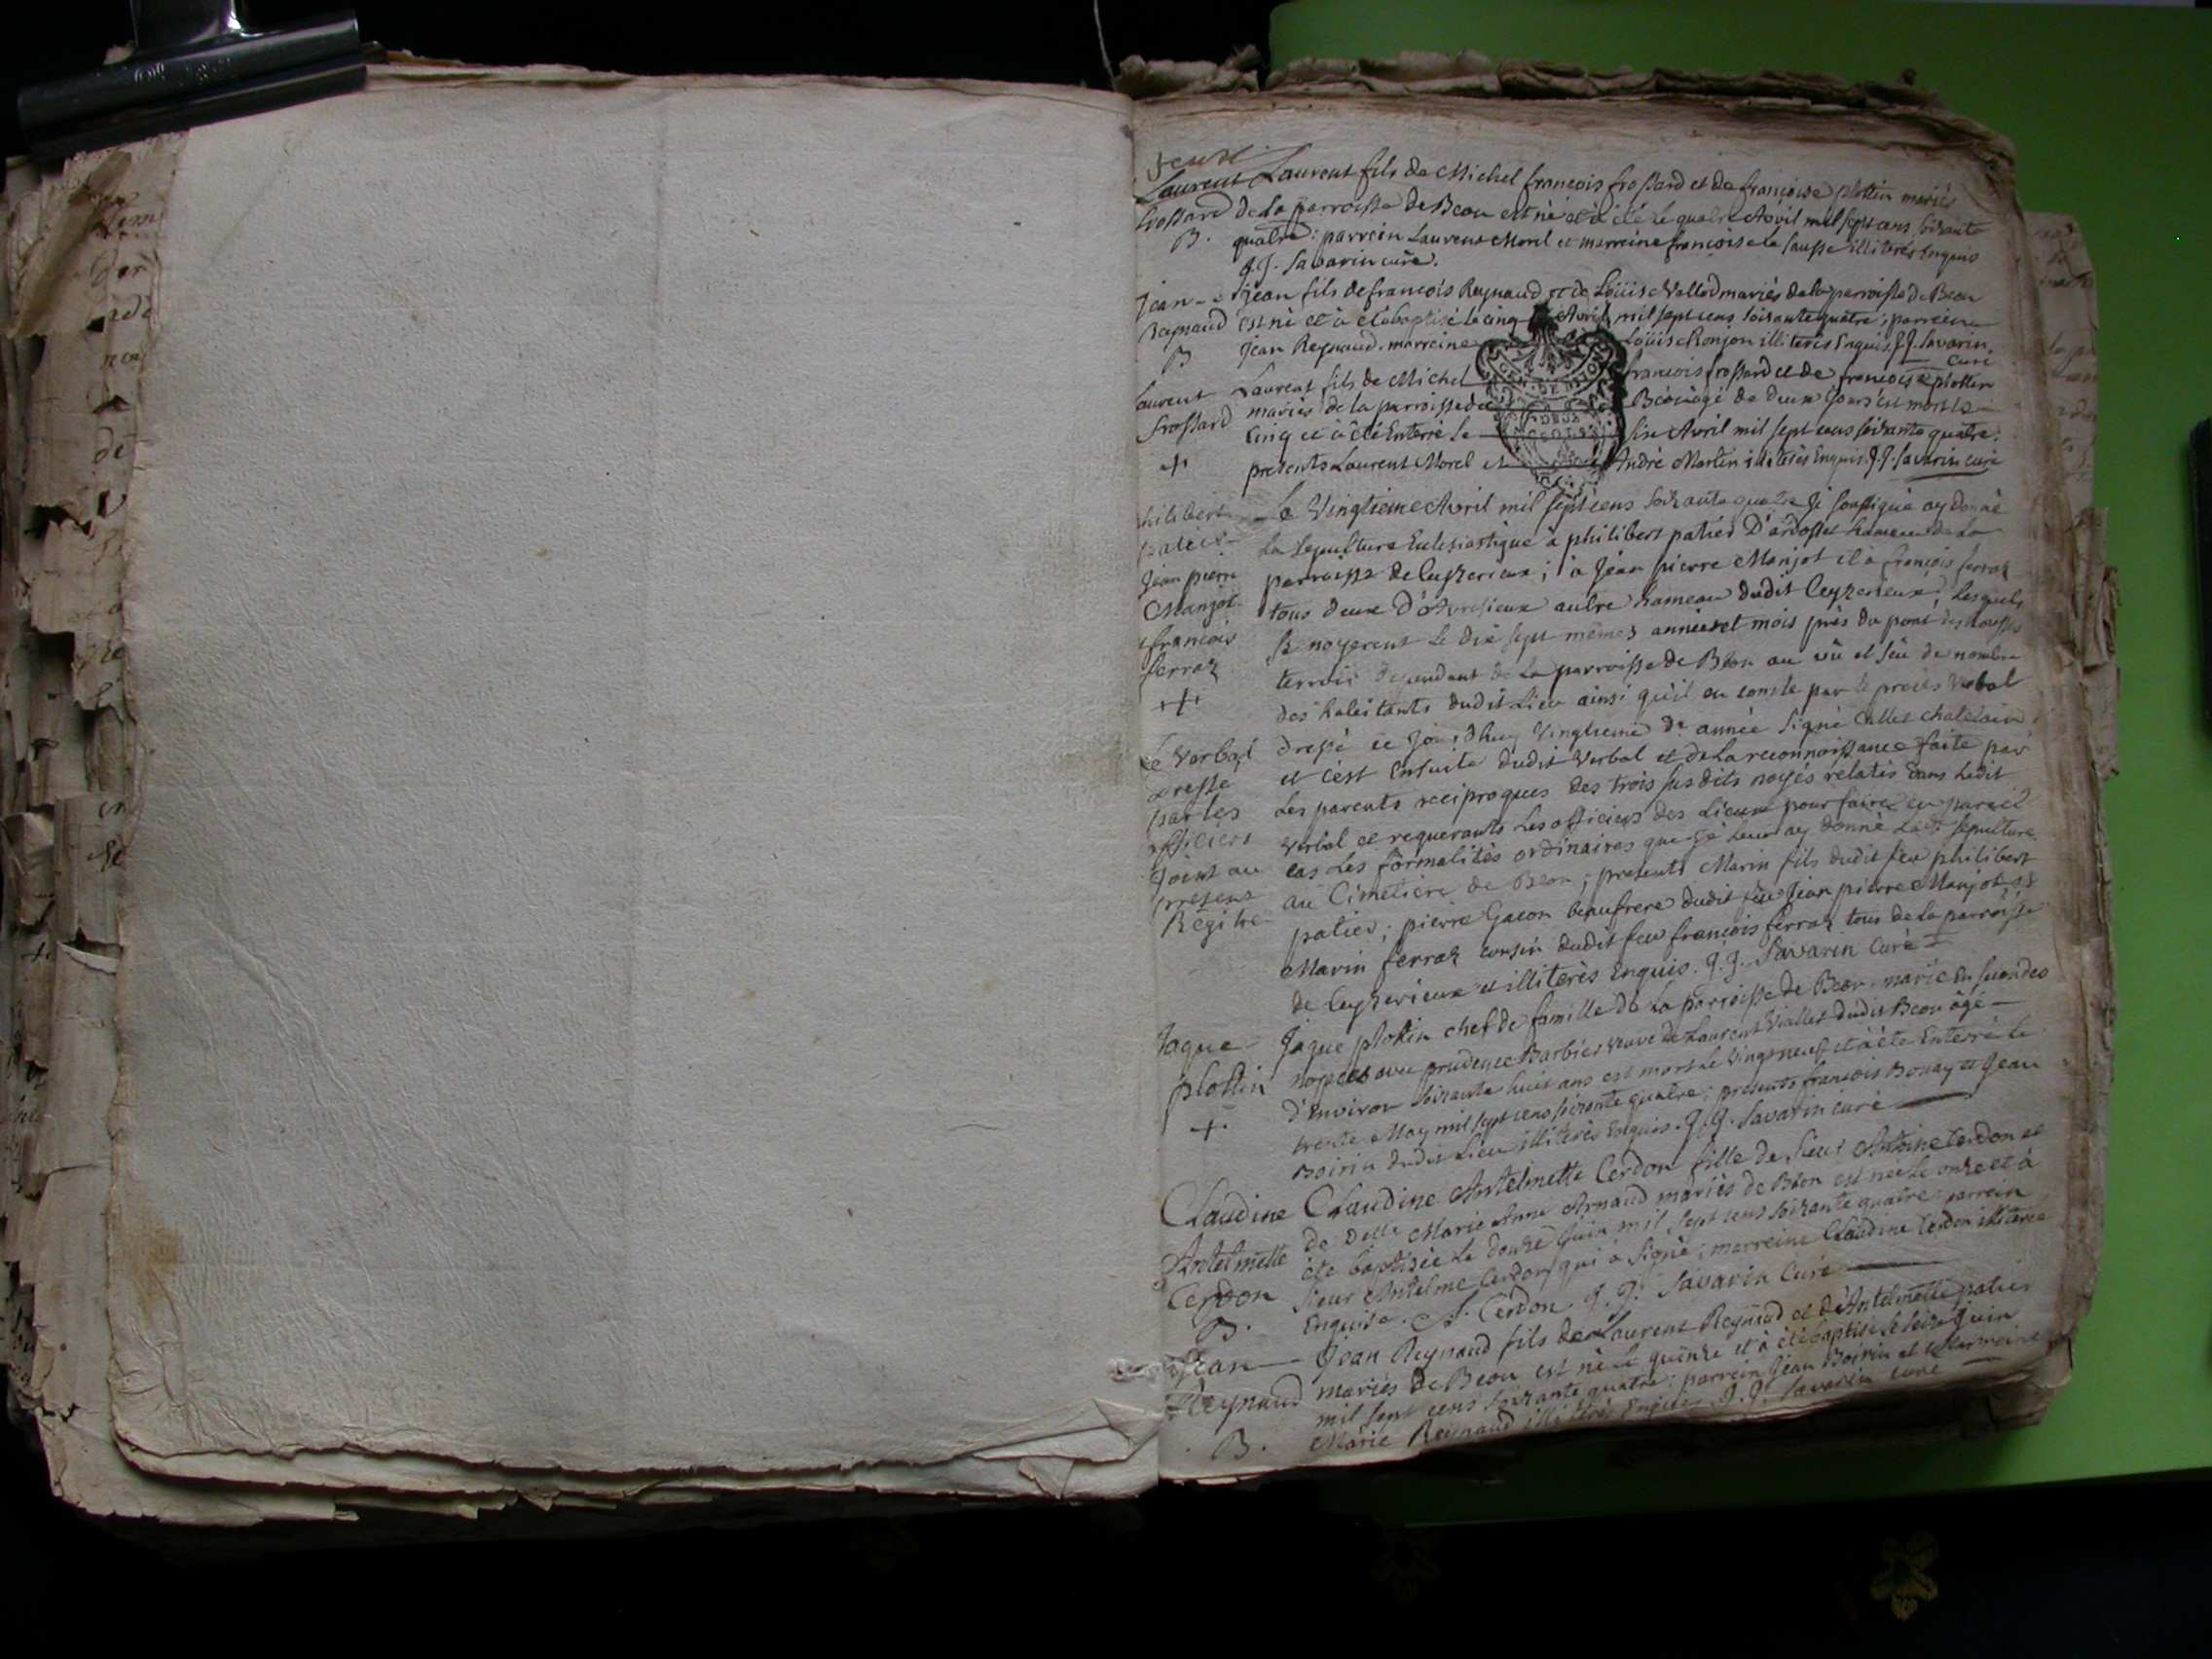 Laurent
frossard
B.
Laurent fils de Michel françois frossard et de françoise plottin mariés
de la parroisse de Beon est né et à été le quatre Avril mil sept cens soixante
quatre: parrein Laurens Morel et marreine françoise la sausse illiterés Enquis
J.J. Savarin curé.
jean
Reynaud
B
jean fils de francois Reynaud et de Loüise Vallod mariés de la parroisse de Beon
est né et à été baptisé le cinq Avril mil sept cens soixante quatre; parrein
jean Reynaud. marreine Loüise Ronjon illiterés Enquis. J.J. Savarin.
curé
Laurent
frossard
+
Laurent fils de Michel francois frossard et de francoise plottin
mariés de la parroisse de Beon agé de deux jours est mort le
cinq et à été Enterré le six Avril mil sept cens soixante quatre:
presents Laurent Morel et André Martin illiterés Enquis. J.J. Savarin curé
philibert
patier
Jean pierre
Manjot
francois
ferraz
+
Le Vingtieme Avril mil sept cens soixante quatre Je soussigné ay donné
La sepulture Eclesiastique à philibert patier D'ardosset hameau de La
parroisse de Ceyzerieux; à Jéan pierre Manjot et à françois ferraz
tous deux D'Avresieux autre hameau dudit Ceyzerieux, Lesquels
se noyerent Le dix sept mêmes année et mois près du pont des
terroir dependant de La parroisse de Beon au vû et sçu de nombre
des habitants dudit Lieu ainsi qu'il en conste par le procès Verbal
dressé ce jourdhuy Vingtieme de année signé Callet chatelain
et c'est Ensuite dudit Verbal et de La reconnoissance faite par
Les parents reciproques des trois susdits noyés relatés dans ledit
verbal et requerants Les officiers des Lieux pour faire en pareil
cas Les formalités ordinaires que je leur ay donné La de sepulture
au Cimetiére de Beon; presents Marin fils dudit feu philibert
patier; pierre Gacon beaufrere dudit feu Jean pierre Manjot et
Marin ferraz cousin dudit feu francois ferraz tous de la parroisse
de Ceyzerieux et illiterés Enquis. J.J. Savarin Curé
Le Verbal
dresse
par les
officiers
Joint au
present
Régitre
Jaque
plottin
+
Jaque plottin chef de famille de La parroisse de Beon marié en secondes
nopces avec prudence Barbier veuve de Laurent Viallet dudit Beon âgé
d'Environ soixante huit ans est mort le Vingt neuf et à été Enterré le
trente May mil sept cens soixante quatre; presents francois Bonay et Jean
Boirin dudit Lieu illiterés Enquis. J.J. Savarin curé
Claudine
Antelmette
Cerdon
B.
Claudine Antelmette Cerdon fille de sieur Antoine Cerdon et
de Delle Marie Anne Arnaud mariés de Beon est née le onze et à
été baptisée le douze Juin mil sept cens soixante quatre: parrein
sieur Antelme Cerdon qui à signé; marreine Claudine Cerdon illiterée
Enquise. A. Cerdon J.J. Savarin Curé
Jean
Reynaud
B.
Jean Reynaud fils de Laurent Reynaud et d'Antelmette patier
mariés de Beon est né le quinze et à été baptisé le seize Juin
mil sept cens soixante quatre: parrein Jean Boirin et Marreine
Marie Reynaud illiterés Enquis J.J. Savarin curé